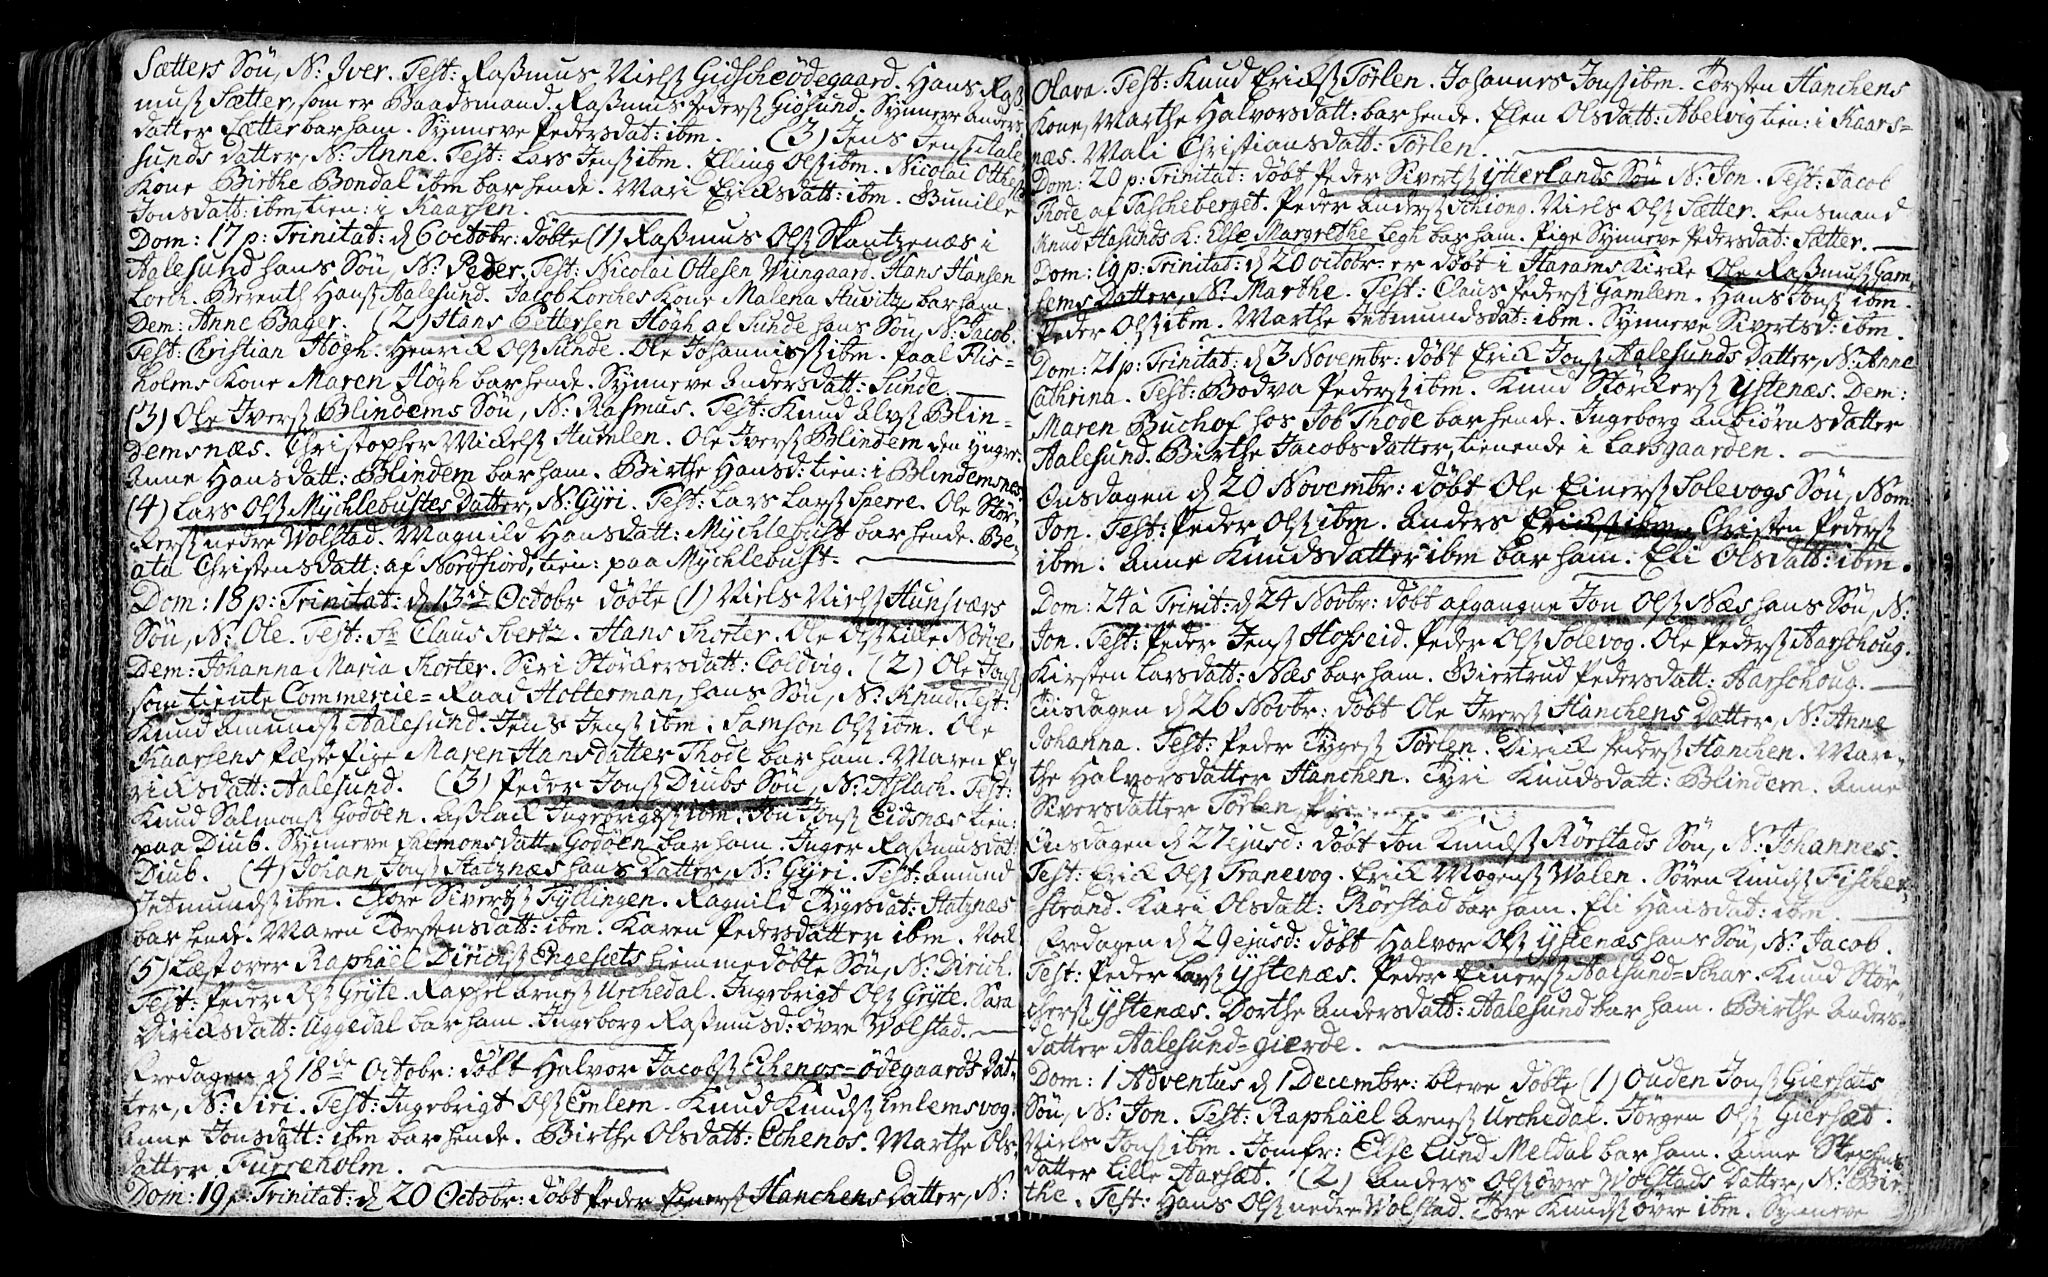 Sætters Sön, N: Iver. Test: Rasmus Niels Gidscheödegaard. Hans Ras
mus Sætter, som er Baadsmand. Rasmus Peders Giösund. Synneve Anders
datter Sætter bar ham. Synneve Pedersdat: ibm. (3) Jens Jens Kale
sunds Datter, N: Anne. Test: Lars Jens ibm. Elling Ols ibm. Nicolai Otthis
Kone Birthe Bondal ibm bar hende. Mari Ericksdatt: ibm. Bunille
Jonsdatt: ibm tien: i Kaarsen.
Dom: 17 p: Trinitat: d 6 octobr: döbte (1) Rasmus Ols Skantzenæs i
Aalesund hans Sön, N: Peder. Test: Nicolai Ottesen Viingaard. Hans Hansen
Lorch. Berenth Hans Aalesund. Jacob Lorches Kone Malena Huvitz bar ham.
Dem: Anne Bager. (2) Hans Pettersen Högh af Sunde hans Sön, N: Jacob.
Test: Christian Högh. Henrick Ols Sunde. Ole Johannis ibm. Paal Flis=
holms Kone Maren Högh bar hende. Synneve Andersdatt: Sunde
(3) Ole Ivers Blindems Sön, N: Rasmus. Test: Knud Alvs Blin=
demsnæs. Christopher Mickels Humlen. Ole Ivers Blindem den yngre.
Anne Hansdatt: Blindem bar ham. Birthe Hansd: tien: i Blindemsnes.
(4) Lars Ols Mychlebustes Datter, N: Gyri. Test: Lars Lars Sperre. Ole Stör
kers nedre Wolstad. Magnild Hansdatt: Mychlebust bar hende. Be=
ata Christensdatt: af Nordfiord, tien: paa Mychlebust.
Dom: 18 p: Trinitat: d 13de Octobr döbte (1) Niels Niels Hunsværs
Sön, N: Ole. Test: Sr Claus Svertz. Hans Thorter. Ole Ols Lille Nörve.
Dem: Johanna Maria Thorter. Siri Störkersdatt: Coldvig. (2) Ole Jons
som tiente Commercie=Raad Hotterman, hans Sön, N: Knud. Test:
Knud Amunds Aalesund. Jens Jens ibm. Samson Ols ibm. Ole
Kaarsens Fæste Pige Maren Hansdatter Thode bar ham. Maren E
ricksdatt: Aalesund. (3) Peder Jons Diubs Sön, N: Aslach. Test:
Knud Salmons Godöen. Aslack Ingebrigts ibm. Jon Jons Eidsnæs tien:
paa Diub. Synneve Salmonsdatt: Godöen bar ham. Inger Rasmusdat:
Diub. (4) Johan Jons Statznæs hans Datter, N: Gyri. Test: Amund
Jetmunds ibm. Tore Siverts Fyllingen. Ragnild Tygesdat: Statznæs
bar hende. Maren Torstensdatt: ibm. Karen Pedersdatter ibm. Nock
(5) Læst over Raphäel Dirichs Engesets hiemmedöbte Sön, N: Dirich.
Test: Peder Ols Gryte. Raphel Arnes Urchedal. Ingebrigt Ols Gryte. Sara
Diricksdatt: Uggedal bar ham. Ingeborg Rasmusd: övre Wolstad.
Fredagen d 18de Octobr: döbt Halvor Jacobs Echenos=ödegaards Dat
ter, N: Siri. Test: Ingebrigt Ols Emlem. Knud Knuds Emlemsvog.
Anne Jonsdatt: ibm bar hende. Birthe Olsdatt: Echenos. Marthe Ols
datter Furreholm.
Dom: 19 p: Trinitat: d 20 Octobr: döbt Peder Einers Hanchens Datter, N:
Olava. Test: Knud Ericks Törlen. Johannes Jons ibm. Torsten Hanchens
Kone, Marthe Halvorsdatt: bar hende. Elen Olsdatt: Abelvig tien: i Kaars=
næs. Mali Christiansdatt: Törlen.
Dom: 20 p: Trinitat: döbt Peder Siverts Ytterlands Sön N: Jon. Test: Jacob
Thode af Tascheberget. Peder Anders Schiong. Niels Ols Sætter. Lensmand
Knud Hasunds K: Else Margrethe Legh bar ham. Pige Synneve Pedersdat: Sætter.
Dom: 19 p: Trinitat: d 20 octobr: er döbt i Harams Kirke Ole Rasmus Gam
lems Datter, N: Marthe. Test: Claus Peders Gamlem. Hans Jons ibm.
Peder Ols ibm. Marthe Jetmundsdat: ibm. Synneve Sivertsd: ibm.
Dom: 21 p: Trinitat: d 3 Novembr: döbt Erick Jons Aalesunds Datter, N: Anne
Cathrina. Test: Bodva Peders ibm. Knud Storkers Ystenæs. Dem:
Maren Buchof hos Job Thode bar hende. Ingeborg Anbiörnsdatter
Aalesund. Birthe Jacobsdatter, tienende i Larsgaarden.
Onsdagen d 20 Novembr: döbt Ole Einers Solevogs Sön, Nom
Jon. Test: Peder Ols ibm. Anders Ericks ibm. Christen Peders
ibm. Anne Knudsdatter ibm bar ham. Eli Olsdatt: ibm.
Dom: 24 à Trinit: d 24 Novbr: döbt afgangne Jon Ols Næs hans Sön, N:
Jon. Test: Peder Jens Hosseid. Peder Ols Solevog. Ole Peders Aarschoug.
Kirsten Larsdatt: Næs bar ham. Biertrud Pedersdatt: Aarschoug.
Tiisdagen d 26 Novbr: döbt Ole Ivers Hanchens Datter, N: Anne
Johanna. Test: Peder Tyges Törlen. Dirick Peders Hanchen. Mar=
the Halvorsdatter Hanchen. Gyri Knudsdatt: Blindem. Anne
Siversdatter Törlen, Pige.
Onsdagen d 27 ejusd: döbt Jon Knuds Rörstads Sön, N: Johannes.
Test: Erick Ols Tranevog. Erick Mogens Walen. Sören Knuds Fischer
strand. Kari Olsdatt: Rörstad bar ham. Eli Hansdad: ibm.
Fredagen d 29 ejusd: döbt Halvor Ols Ystenæs hans Sön, N: Jacob.
Test: Peder Lars Ystenæs. Peder Einers Aalesund=Skar. Knud Stör
chers Ystenæs. Dorthe Andersdatt: Aalesund bar ham. Birthe Anders=
datter Aalesund=gierde.
Dom: 1 Adventus d 1 Decembr: bleve döbte (1) Ouden Jons Giersets
Sön, N: Jon. Test: Raphäel Arnes Urchedal. Jörgen Ols Giersæt.
Niels Jons ibm. Jomfr: Else Lund Meldal bar ham. Anne Stephens
datter Lille Aarsæt. (2) Anders Ols övre Wolstads Datter, N: Bir
the. Test: Hans Ols nedre Wolstad. Tore Knuds övre ibm. Synneve